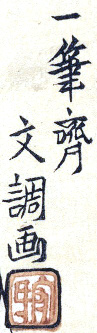 一筆齊
文調画